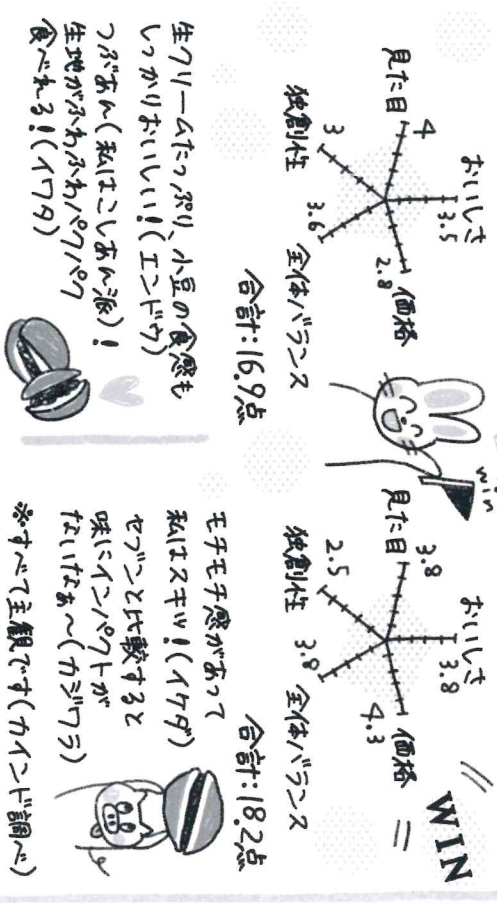 おいしさ
3.5
見た目
4
2.8
価格
3
独創性
3.6
全体バランス
合計:16.9点
生クリームたっぷり、小豆の食感も
しっかりおいしい!(エンドウ)
つぶあん(私はこしあん派)!
生地がふわふわパクパク
食べれる!(イワタ)
win
WIN
おいしさ
3.8
見た目
3.8
4.3
価格
2.5
独創性
3.8
全体バランス
合計:18.2点
モチモチ感があって
私はスキッ!(イケダ)
セブンと比較すると
味にインパクトが
ないなぁ〜(カジワラ)
※すべて主観です(カインド調べ)